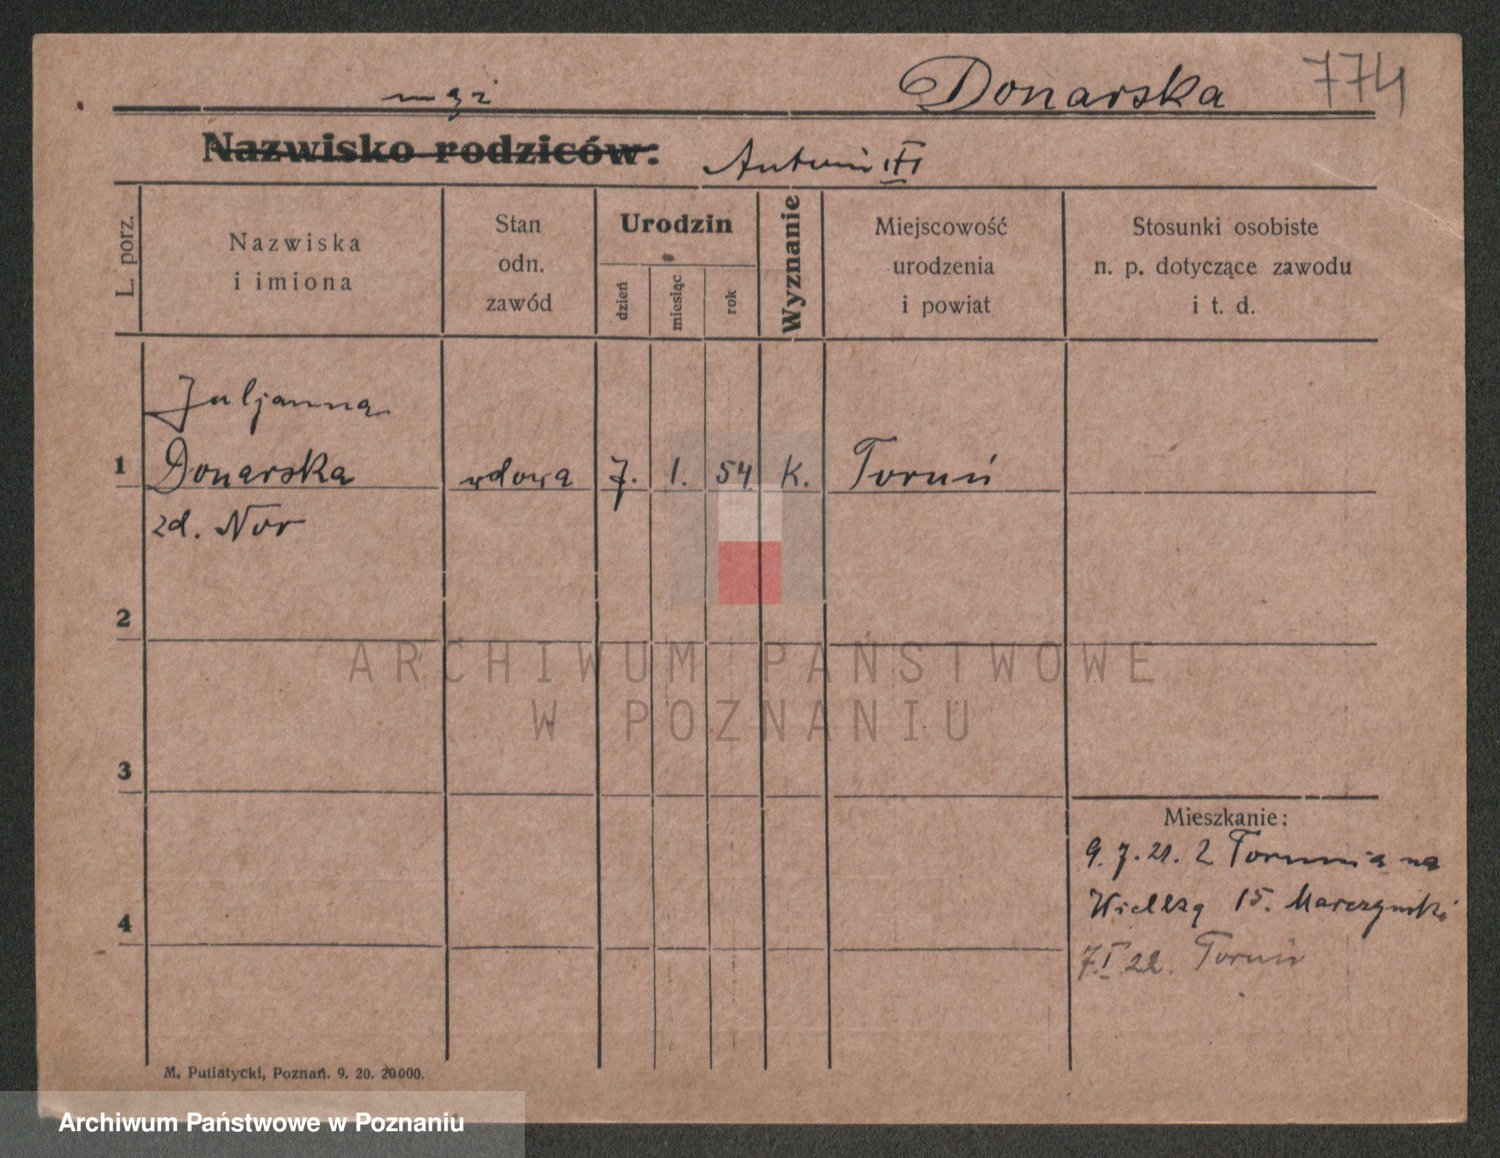 Donarska
774
mąż
Nazwisko rodziców:
Antoni
L. porz.
Nazwiska
i imiona
Stan
odn.
zawód
Urodzin
dzień
miesiąc
rok
Wyznanie
Miejscowość
urodzenia
i powiat
Stosunki osobiste
n. p. dotyczące zawodu
i t. d.
Juljanna
1 Donarska wdowa 7. 1. 54 K. Toruń
zd. Nor
2
3
4
Mieszkanie:
9. 7. 21. z Torunia na
Wielką 15. Marczyński
7.I 22. Toruń
M. Putiatycki, Poznań. 9. 20. 20000.
ARCHIWUM PAŃSTWOWE
W POZNANIU
Archiwum Państwowe w Poznaniu